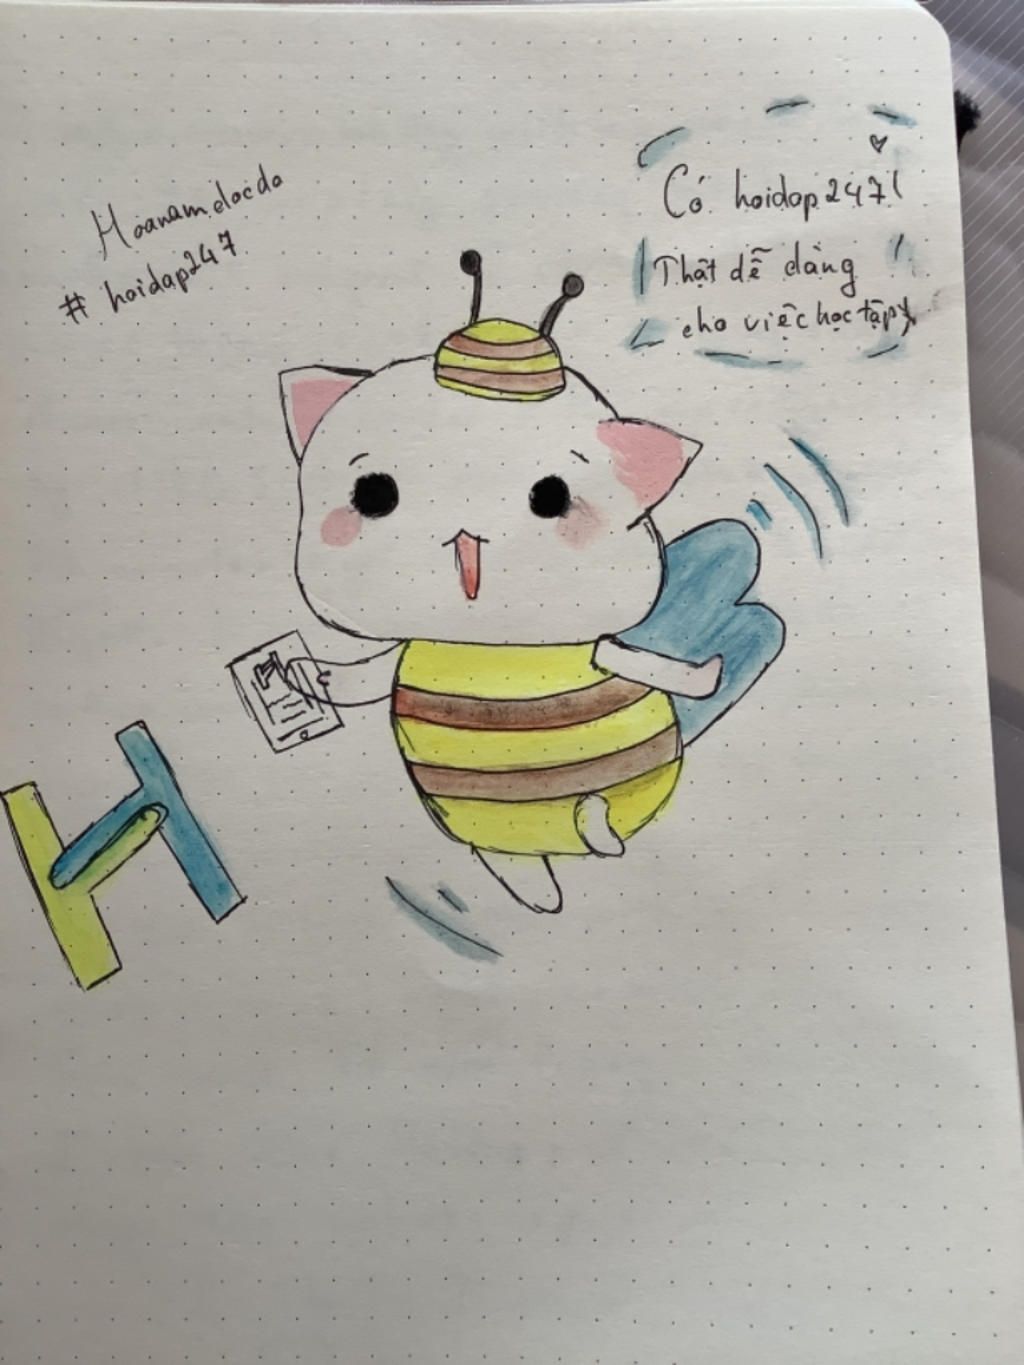 Hoanamdocdo
# hoidap247
Có hoidap247!
Thật dễ dàng
cho việc học tập
H